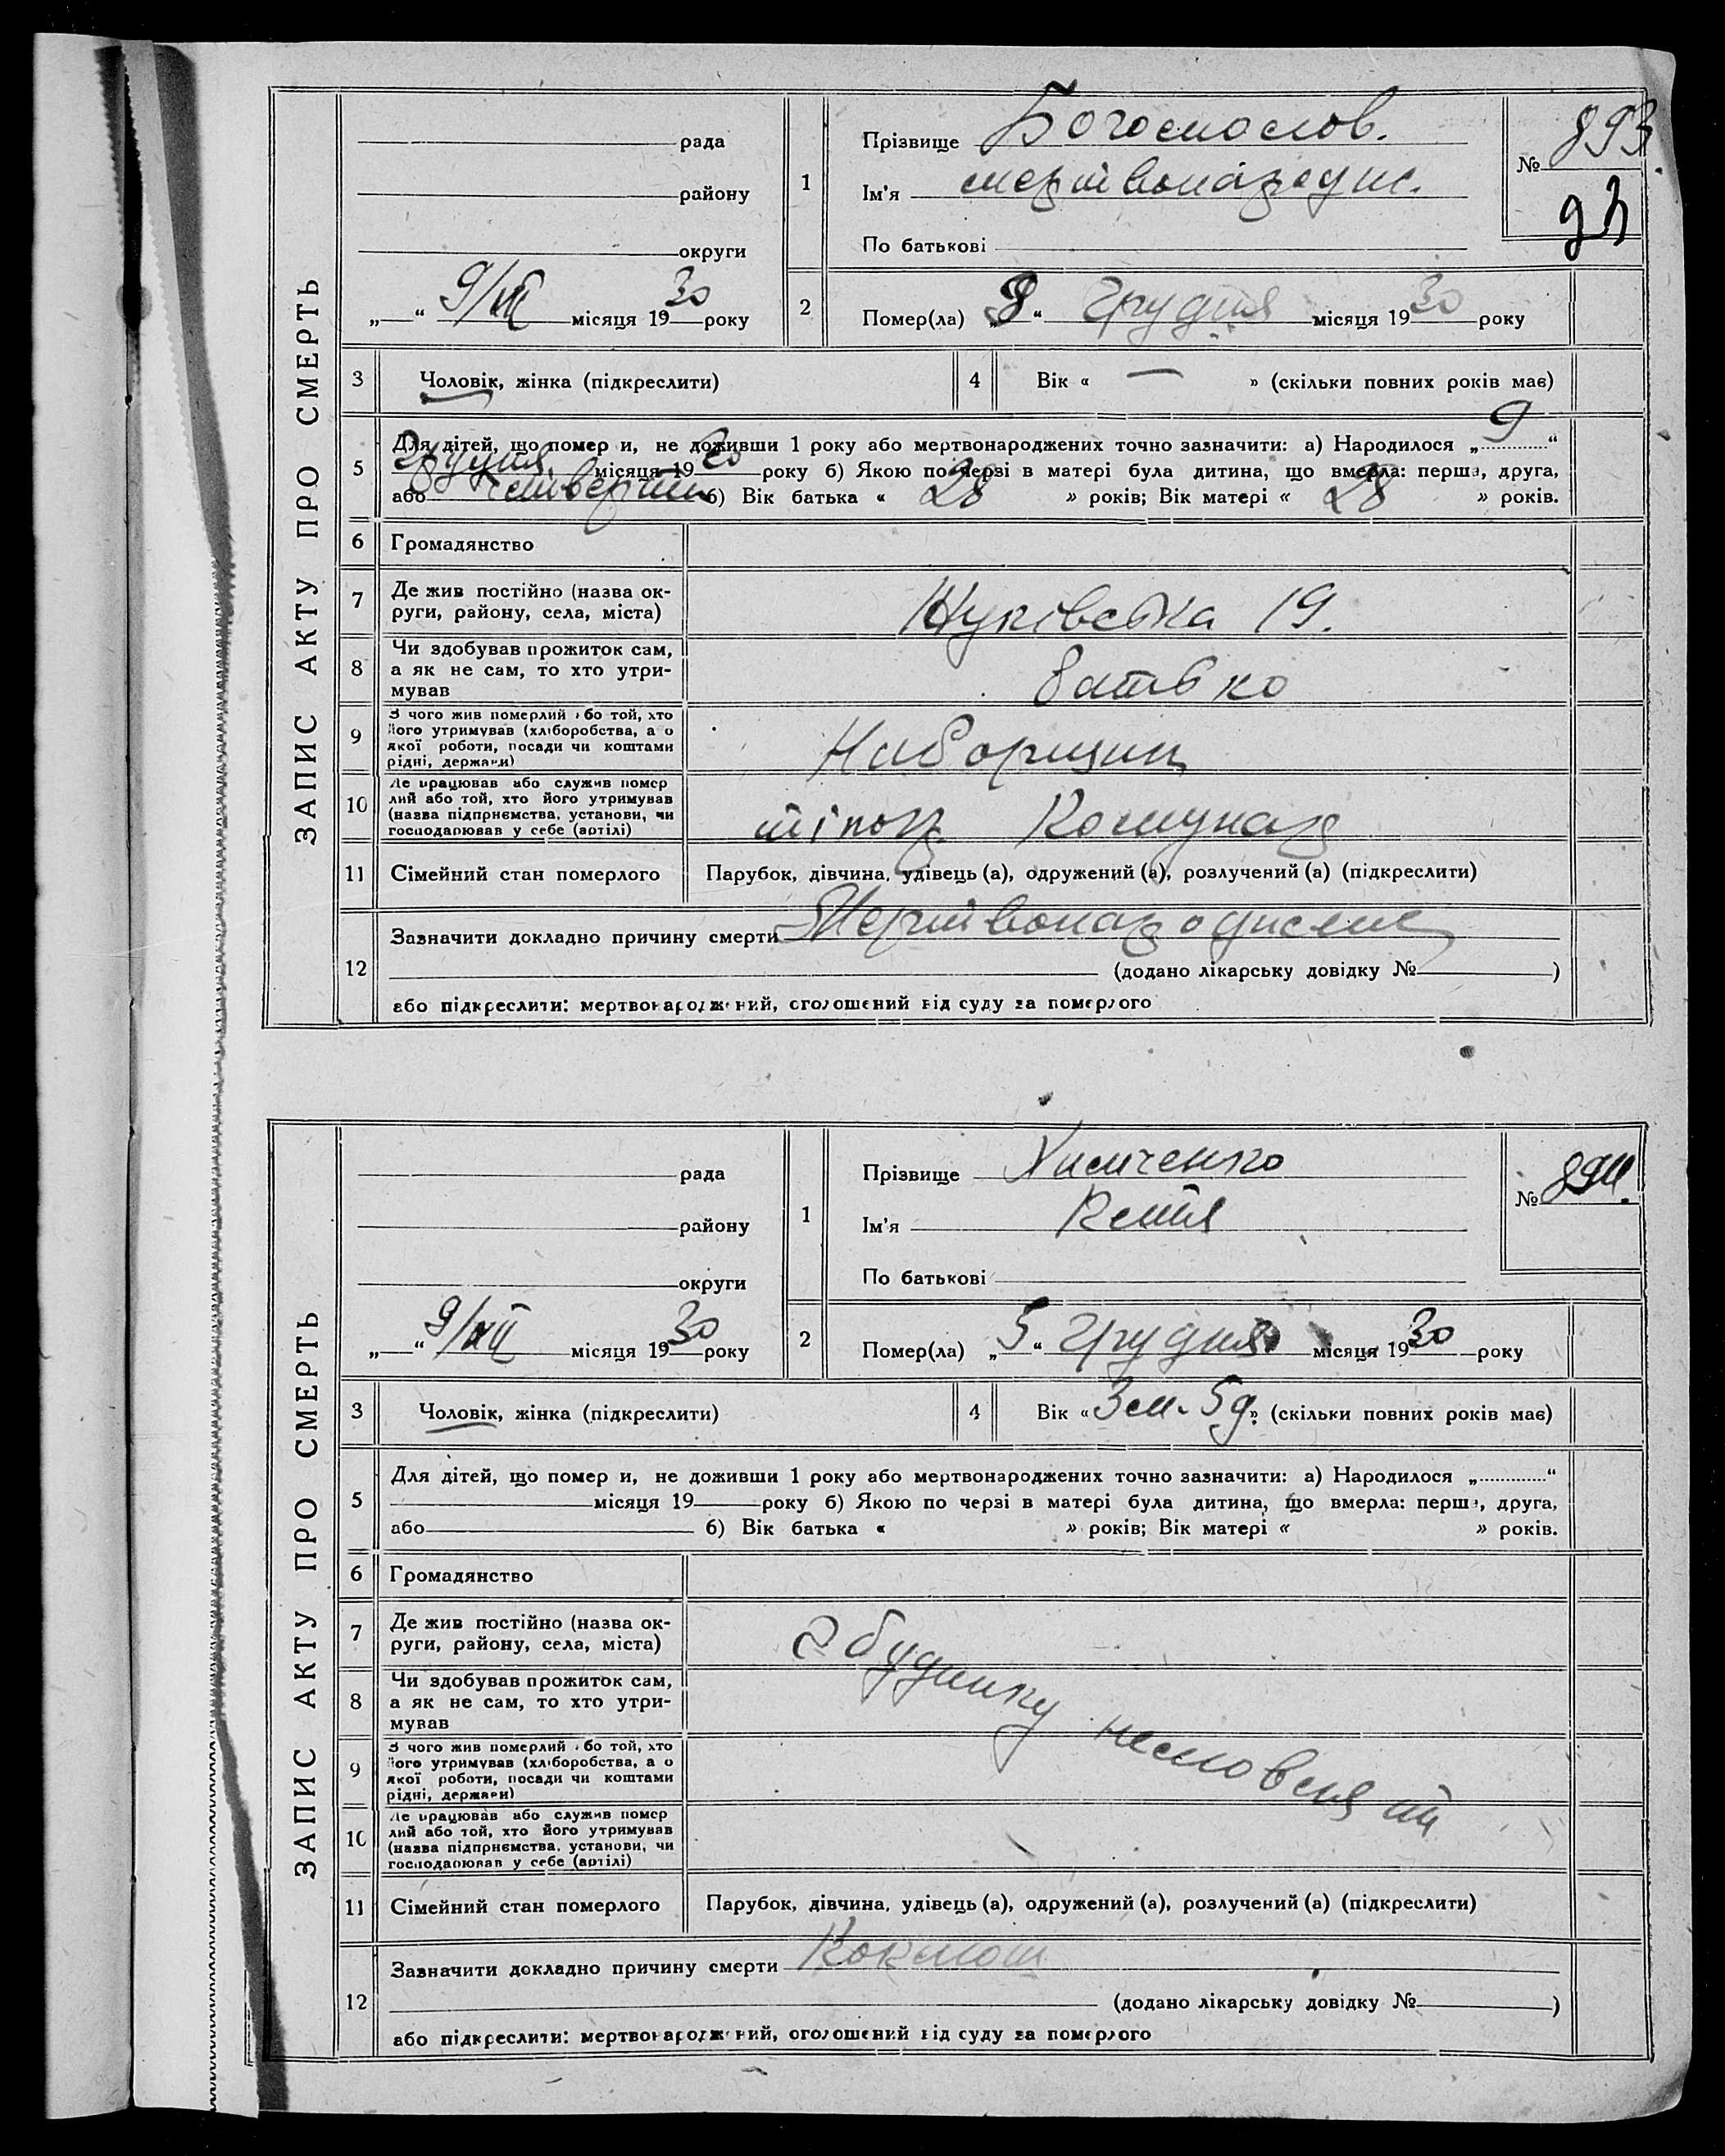 ЗАПИС АКТУ ПРО СМЕРТЬ
рада
району
округи
„ “ 9/XII місяця 1930 року
1
Прізвище
Ім'я мертвонародж.
По батькові
№ 893.
93
2
Помер(ла) „8“ Грудня місяця 1930 року
3
Чоловік, жінка (підкреслити)
4
Вік « — » (скільки повних років має)
5
Для дітей, що помер и, не доживши 1 року або мертвонароджених точно зазначити: а) Народилося „9“
Грудня місяця 19 року б) Якою по черзі в матері була дитина, що вмерла: перша, друга,
або четверта б) Вік батька « 28 » років; Вік матері « 28 » років.
6
Громадянство
7
Де жив постійно (назва ок-
руги, району, села, міста)
Жуківська 19.
8
Чи здобував прожиток сам,
а як не сам, то хто утри-
мував
батько
9
З чого жив померлий або той, хто
його утримував (хліборобства, а о
якої роботи, посади чи коштами
рідні, держави)
Наборщик
10
Де працював або служив помер
лий або той, хто його утримував
(назва підприємства, установи, чи
господарював у себе (артілі)
тіпогр. Комунар
11
Сімейний стан померлого
Парубок, дівчина, удівець (а), одружений (а), розлучений (а) (підкреслити)
12
Зазначити докладно причину смерти
(додано лікарську довідку № )
або підкреслити: мертвонароджений, оголошений від суду за померлого
ЗАПИС АКТУ ПРО СМЕРТЬ
рада
району
округи
„ “ 9/XII місяця 1930 року
1
Прізвище Химченко
Ім'я Кетя
По батькові
№ 894.
2
Помер(ла) „5“ Грудня місяця 1930 року
3
Чоловік, жінка (підкреслити)
4
Вік « 3 м. 5 д. » (скільки повних років має)
5
Для дітей, що помер и, не доживши 1 року або мертвонароджених точно зазначити: а) Народилося „ “
місяця 19 року б) Якою по черзі в матері була дитина, що вмерла: перша, друга,
або б) Вік батька « » років; Вік матері « » років.
6
Громадянство
7
Де жив постійно (назва ок-
руги, району, села, міста)
З будинку немовлят
8
Чи здобував прожиток сам,
а як не сам, то хто утри-
мував
9
З чого жив померлий або той, хто
його утримував (хліборобства, а о
якої роботи, посади чи коштами
рідні, держави)
10
Де працював або служив помер
лий або той, хто його утримував
(назва підприємства, установи, чи
господарював у себе (артілі)
11
Сімейний стан померлого
Парубок, дівчина, удівець (а), одружений (а), розлучений (а) (підкреслити)
12
Зазначити докладно причину смерти Коклюш
(додано лікарську довідку № )
або підкреслити: мертвонароджений, оголошений від суду за померлого